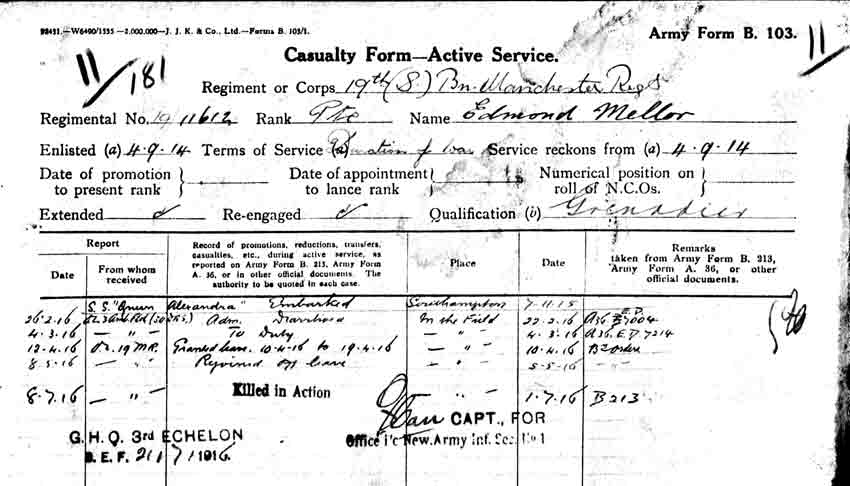 Army Form B. 103.
Casualty Form—Active Service.
11/181
11
Regiment or Corps 19th (S) Bn. Manchester Regt
Regimental No. 19/11612 Rank Pte Name Edmond Mellor
Enlisted (a) 4.9.14 Terms of Service (a) Duration of War Service reckons from (a) 4.9.14
Date of promotion to present rank Date of appointment to lance rank Numerical position on roll of N.C.Os.
Extended Re-engaged Qualification (b) Grenadier
Report
Date From whom received
Record of promotions, reductions, transfers, casualties, etc., during active service, as reported on Army Form B. 213, Army Form A. 36, or in other official documents. The authority to be quoted in each case.
Place
Date
Remarks taken from Army Form B. 213, Army Form A. 36, or other official documents.
S.S. "Queen Alexandra" Embarked Southampton 7-11-15
26.2.16 Adm. Diarrhoea In the Field 22.2.16 A36
4.3.16 — " — To Duty — " — 4.3.16 A36. E.D. 7214
12.4.16 O.C. 19 M.R. Granted leave 10.4.16 to 19.4.16 — " — 10.4.16
8.5.16 — " — Rejoined off leave — " — 5-5-16
8.7.16 — " — Killed in Action 1.7.16 B213
CAPT., FOR
Office i/c New. Army Inf. Sec. No 1
G.H.Q. 3rd ECHELON
B.E.F. 21/7/1916.